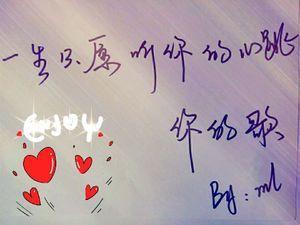 一生只愿听你的心跳
enjoy
你的歌
By: ml